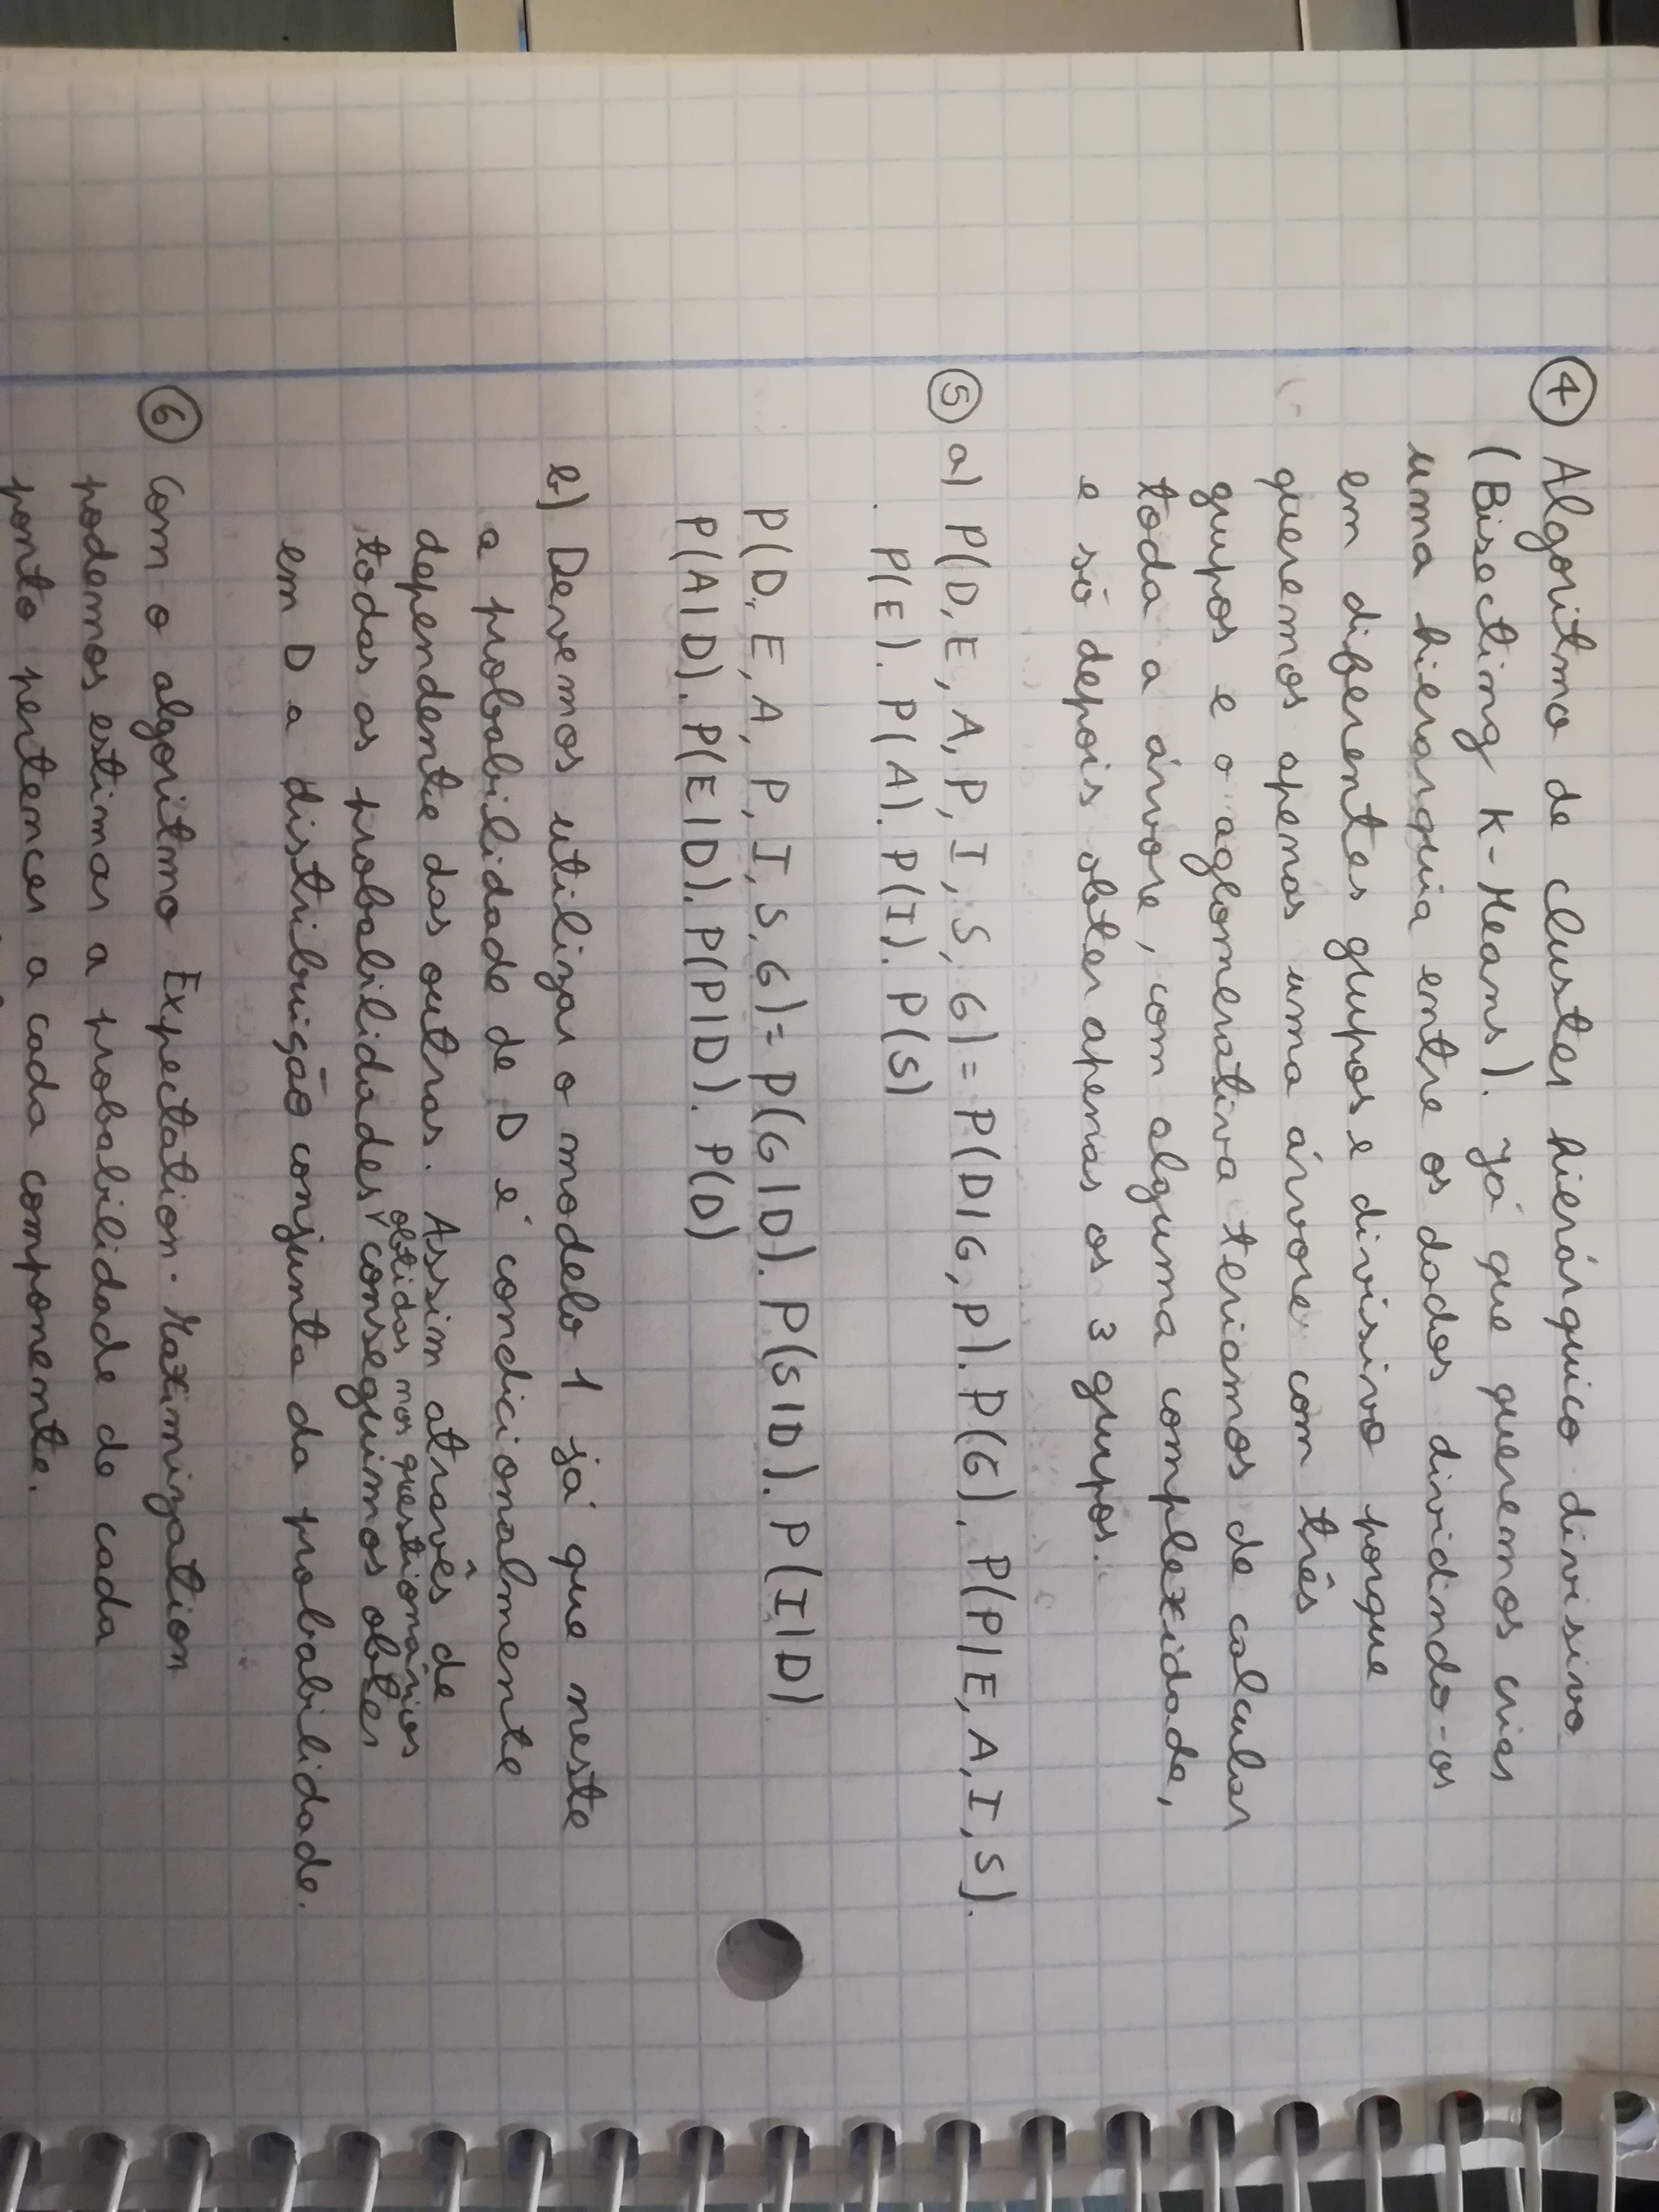 ④ Algoritmo de cluster hierárquico divisivo
(Bisecting K-Means). Já que queremos criar
uma hierarquia entre os dados dividindo-os
em diferentes grupos e divisivo porque
queremos apenas uma árvore com três
grupos e o aglomerativa teriamos de calcular
toda a árvore, com alguma complexidade,
e só depois obter apenas os 3 grupos.
⑤ a) P(D,E,A,P,I,S,G) = P(D|G,P). P(G). P(P|E,A,I,S).
. P(E). P(A). P(I). P(S)
P(D,E,A,P,I,S,G) = P(G|D). P(S|D). P(I|D)
P(A|D). P(E|D). P(P|D). P(D)
b) Devemos utilizar o modelo 1 já que neste
a probabilidade de D é condicionalmente
dependente das outras. Assim através de
todas as probabilidades obtidas nos questionários conseguimos obter
em D a distribuição conjunta da probabilidade.
⑥ Com o algoritmo Expectation-Maximization
podemos estimar a probabilidade de cada
ponto pertencer a cada componente.